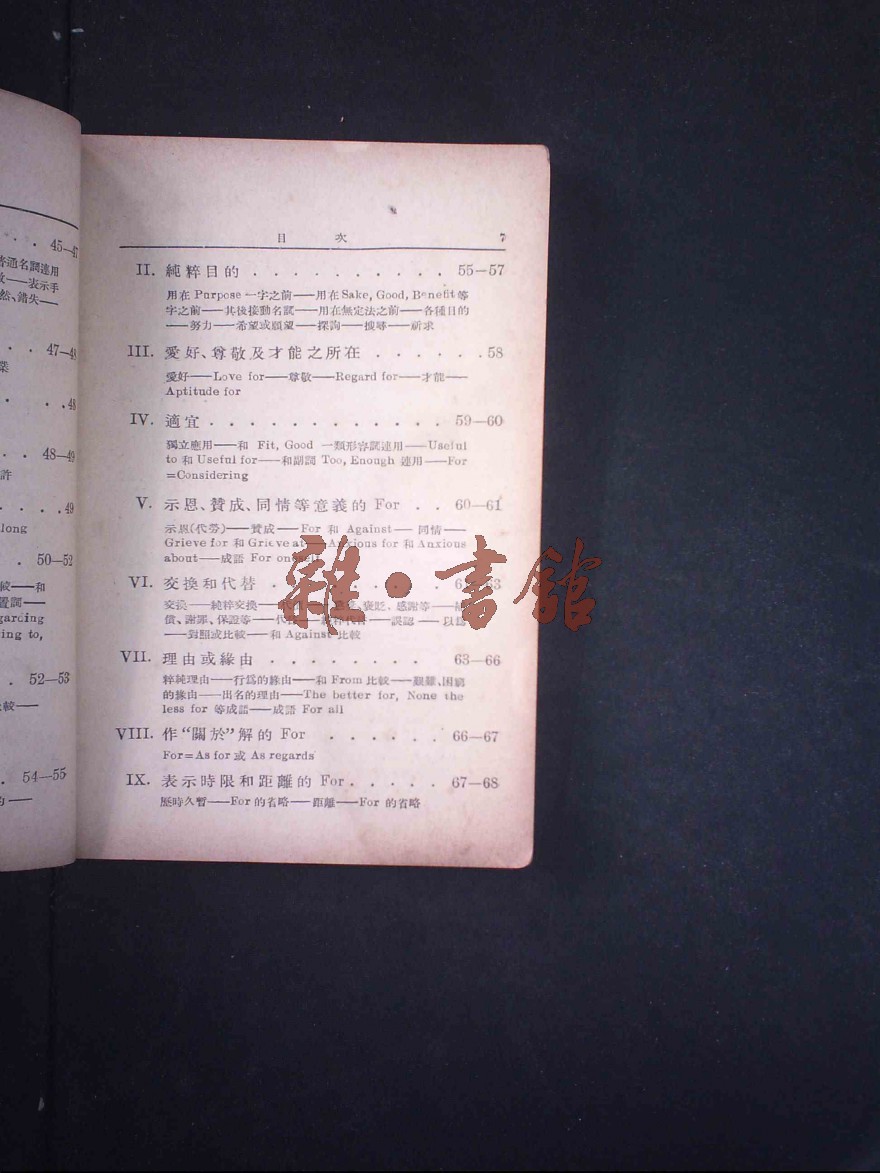 45—47
普通名詞連用
表示手
然、錯失——
47—48
業
48
48—49
許
49
long
50—52
較——和
置詞——
garding
ing to,
52—53
較——
54—55
的——
目 次 7
II. 純粹目的 . . . . . . . . . . 55—57
用在 Purpose 一字之前——用在 Sake, Good, Benefit 等
字之前——其後接動名詞——用在無定法之前——各種目的
——努力——希望或願望——探詢——搜尋——祈求
III. 愛好、尊敬及才能之所在 . . . . . . 58
愛好——Love for——尊敬——Regard for——才能——
Aptitude for
IV. 適宜 . . . . . . . . . . . . 59—60
獨立應用——和 Fit, Good 一類形容詞連用——Useful
to 和 Useful for——和副詞 Too, Enough 連用——For
=Considering
V. 示恩、贊成、同情等意義的 For . . 60—61
示恩(代勞)——贊成——For 和 Against——同情——
Grieve for 和 Grieve at——Anxious for 和 Anxious
about——成語 For oneself
VI. 交換和代替 . . . . . . . . 63
交換——純粹交換——褒貶、感謝等——
償、謝罪、保證等——代替——純粹代替——誤認——以爲
——對照或比較——和 Against 比較
VII. 理由或緣由 . . . . . . . . 63—66
粹純理由——行爲的緣由——和 From 比較——艱難、困窮
的緣由——出名的理由——The better for, None the
less for 等成語——成語 For all
VIII. 作“關於”解的 For . . . . . . 66—67
For=As for 或 As regards
IX. 表示時限和距離的 For . . . . . 67—68
歷時久暫——For 的省略——距離——For 的省略
雜·書館